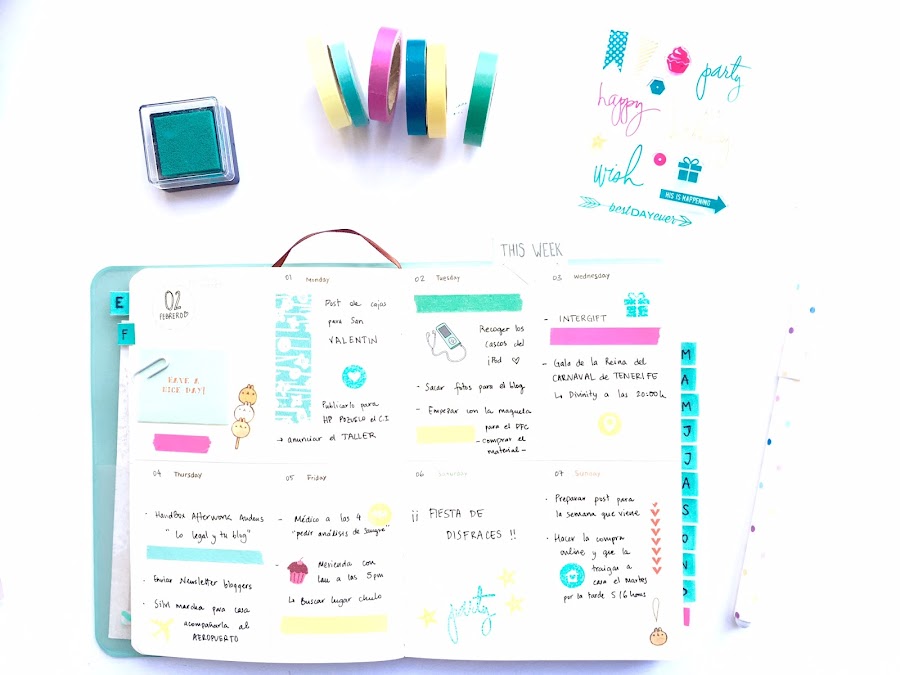 party
happy
wish
HIS IS HAPPENING
best DAY ever
THIS WEEK
E
F
02
FEBRERO
HAVE A
NICE DAY!
01 Monday
Post de cajas
para San
VALENTIN
Publicarlo para
HP POZUELO el C.I
→ anunciar el TALLER
02 Tuesday
Recoger los
cascos del
iPod ♡
- Sacar fotos para el blog
- Empezar con la maqueta
para el PFC
- comprar el
material -
03 Wednesday
- INTERGIFT
- Gala de la Reina del
CARNAVAL de TENERIFE
↳ Divinity a las 20:00h
04 Thursday
· HandBox Afterwork Audens
"Lo legal y tu blog"
· Enviar Newsletter bloggers
· Silvi marcha para casa
acompañarla al
AEROPUERTO
05 Friday
- Médico a las 4
"pedir análisis de sangre"
· Merienda con
Lau a las 5pm
↳ Buscar lugar chulo
06 Saturday
¡¡ FIESTA DE
DISFRACES !!
party
07 Sunday
· Preparar post para
la semana que viene
· Hacer la compra
online y que la
traigan a
casa el Martes
por la tarde 5/6 horas
M
A
M
J
J
A
S
O
N
D